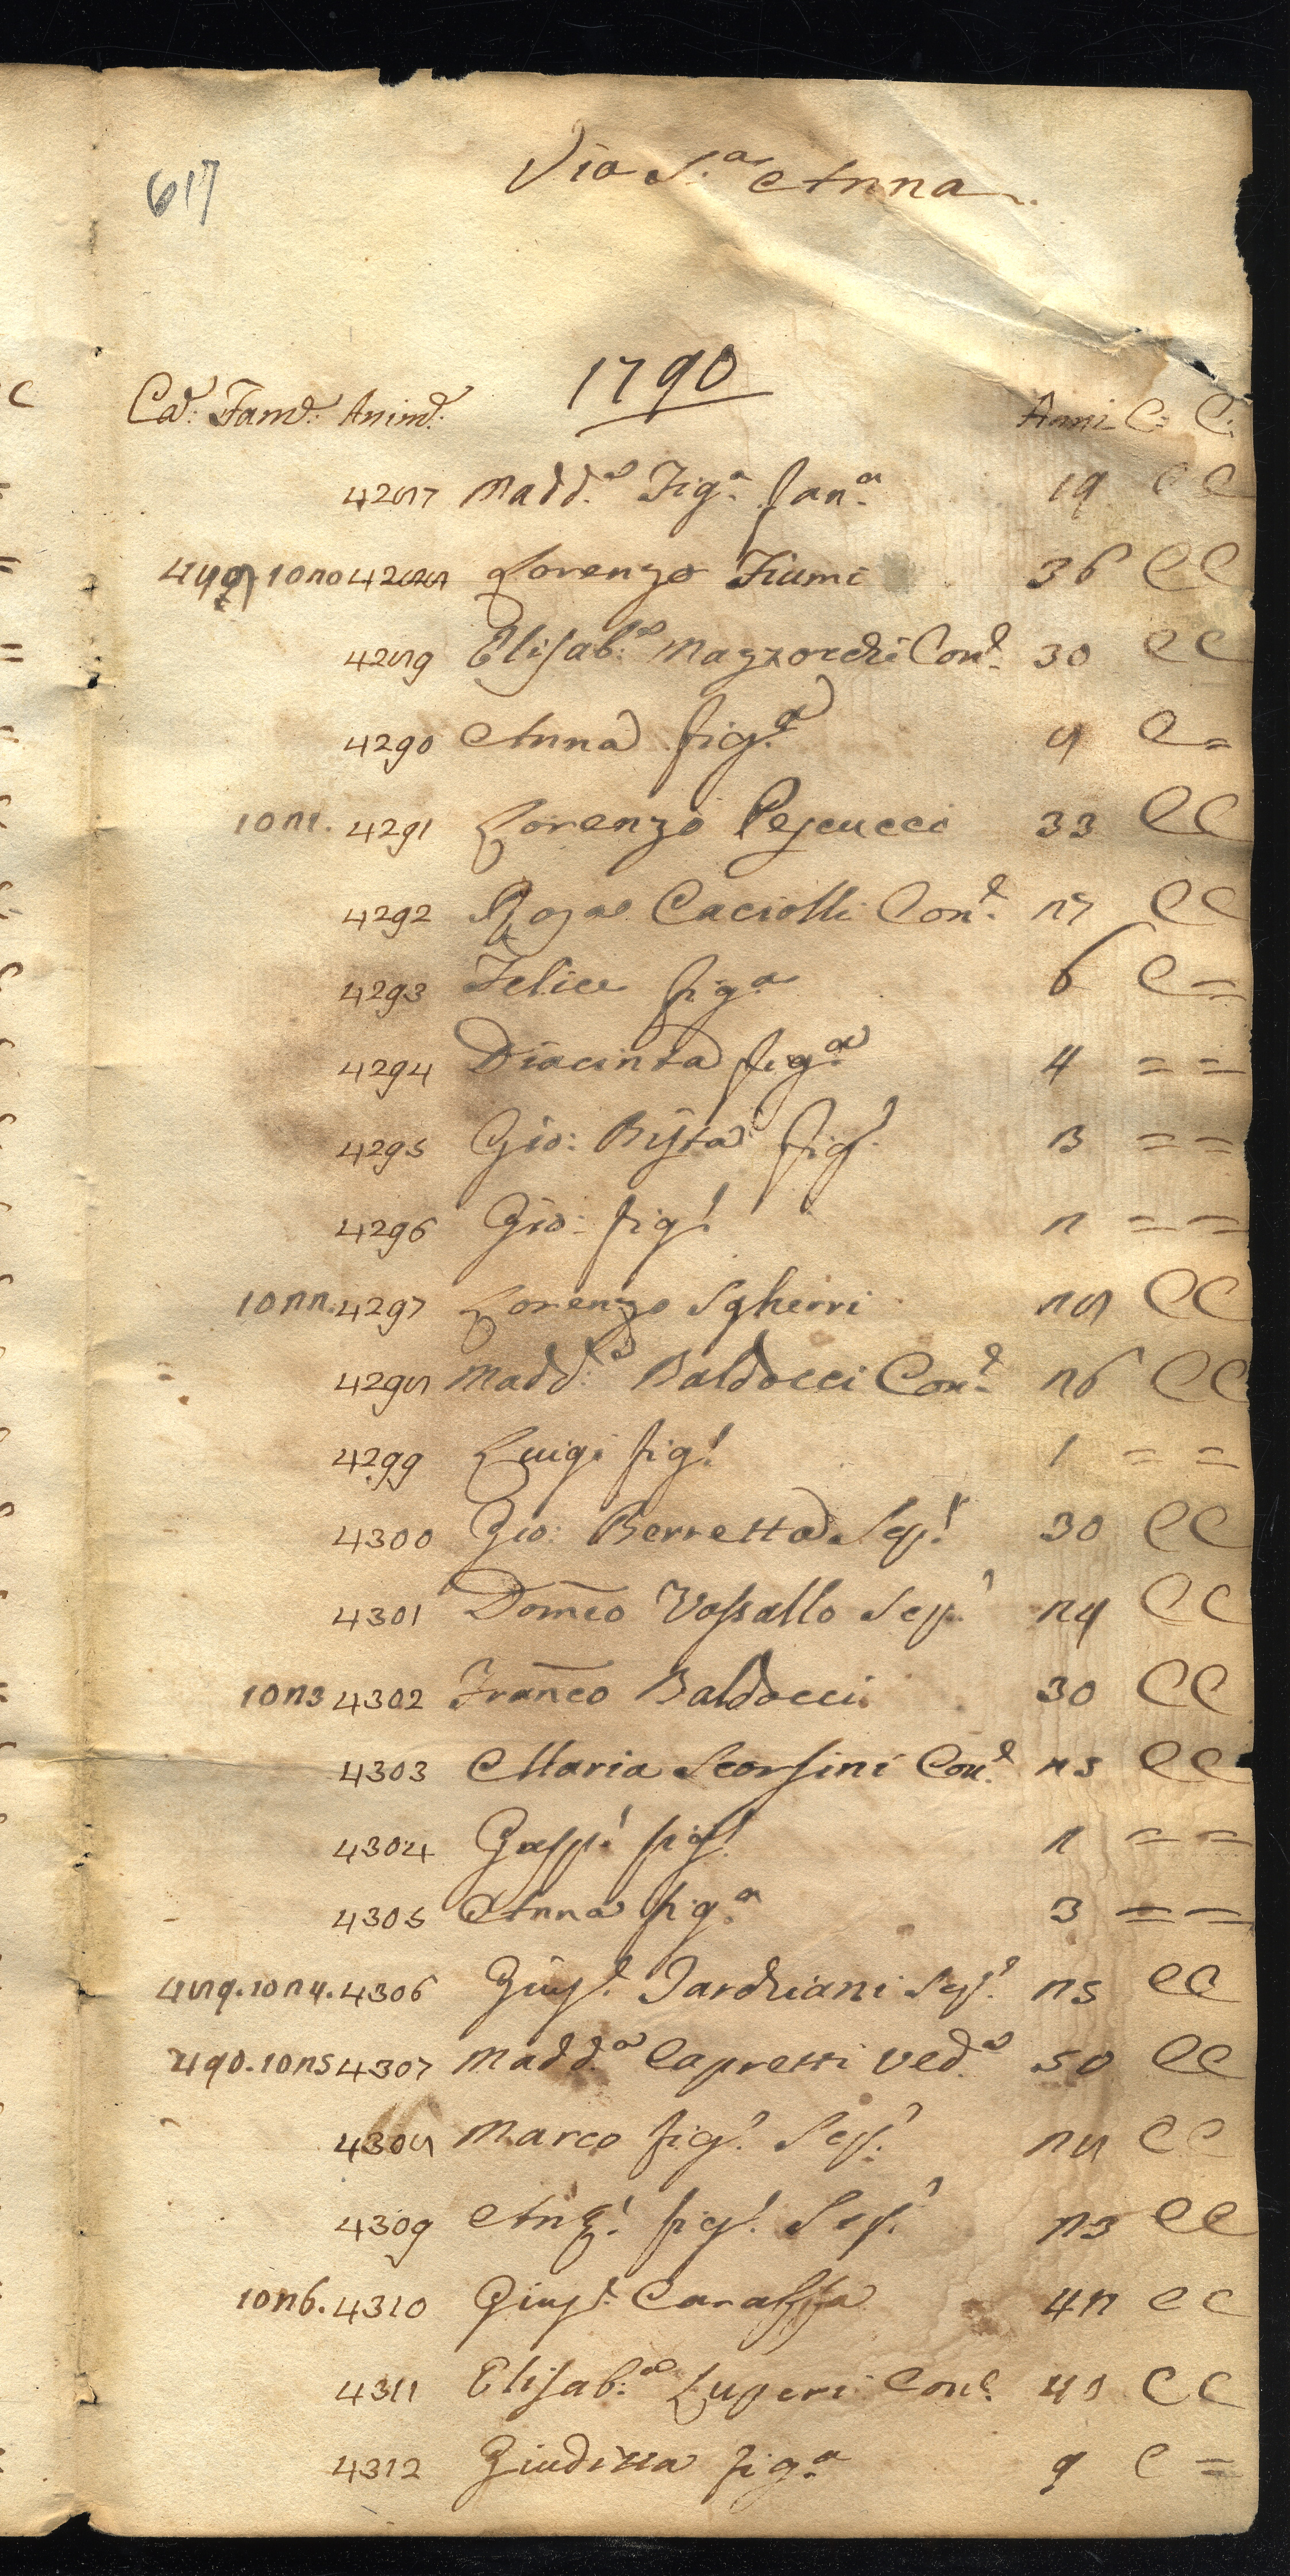 617
Via S.a Anna
1790
Ca.e Fam.e Anim.e Anni C. C.
4287 Madd.a Fig.a Fan.a 19 C C
488 1020 4288 Lorenzo Fiumi 36 C C
4289 Elisab.a Mazzocchi Con.e 30 C C
4290 Anna fig.a 8 C =
1021. 4291 Lorenzo Pescucci 33 C C
4292 Rosa Caciolli Con.e 27 C C
4293 Felice fig.a 6 C =
4294 Diacinta fig.a 4 = =
4295 Gio: Bãta fig.o 3 = =
4296 Gio: fig.o 2 = =
1022. 4297 Lorenzo Sgherri 28 C C
4298 Madd.a Baldocci Con.e 26 C C
4299 Luigi fig.o 1 = =
4300 Gio: Berretta Sep.o 30 C C
4301 Dom̃co Vassallo Sep.o 24 C C
1023 4302 Frañco Baldocci 30 C C
4303 Maria Scorsini Con.e 25 C C
4304 Gasp.o fig.o 2 = =
4305 Anna fig.a 3 = =
489. 1024. 4306 Giusp.e Tarchiani Sep.o 25 C C
490. 1025 4307 Madd.a Capretti Ved.a 50 C C
4308 Marco fig.o Sep.o 28 C C
4309 Ang.o fig.o Sep.o 23 C C
1026. 4310 Giusp.e Caraffa 42 C C
4311 Elisab.a Luperi Con.e 45 C C
4312 Giuditta fig.a 9 C =